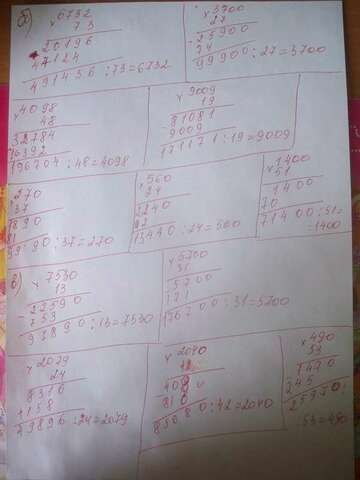 а) x 6732
73
20196
47124
491436 : 73 = 6732
x 3700
27
25900
74
99900 : 27 = 3700
x 4098
48
32784
16392
196704 : 48 = 4098
x 9009
19
81081
9009
171171 : 19 = 9009
x 270
37
1890
81
9990 : 37 = 270
x 560
24
2240
13440 : 24 = 560
x 1400
51
1400
70
71400 : 51 =
= 1400
в) x 7530
13
22590
753
97890 : 13 = 7530
x 5700
31
5700
171
176700 : 31 = 5700
x 2079
24
8316
4158
49896 : 24 = 2079
x 2040
42
85680 : 42 = 2040
x 490
53
1470
245
25970 :
: 53 = 490